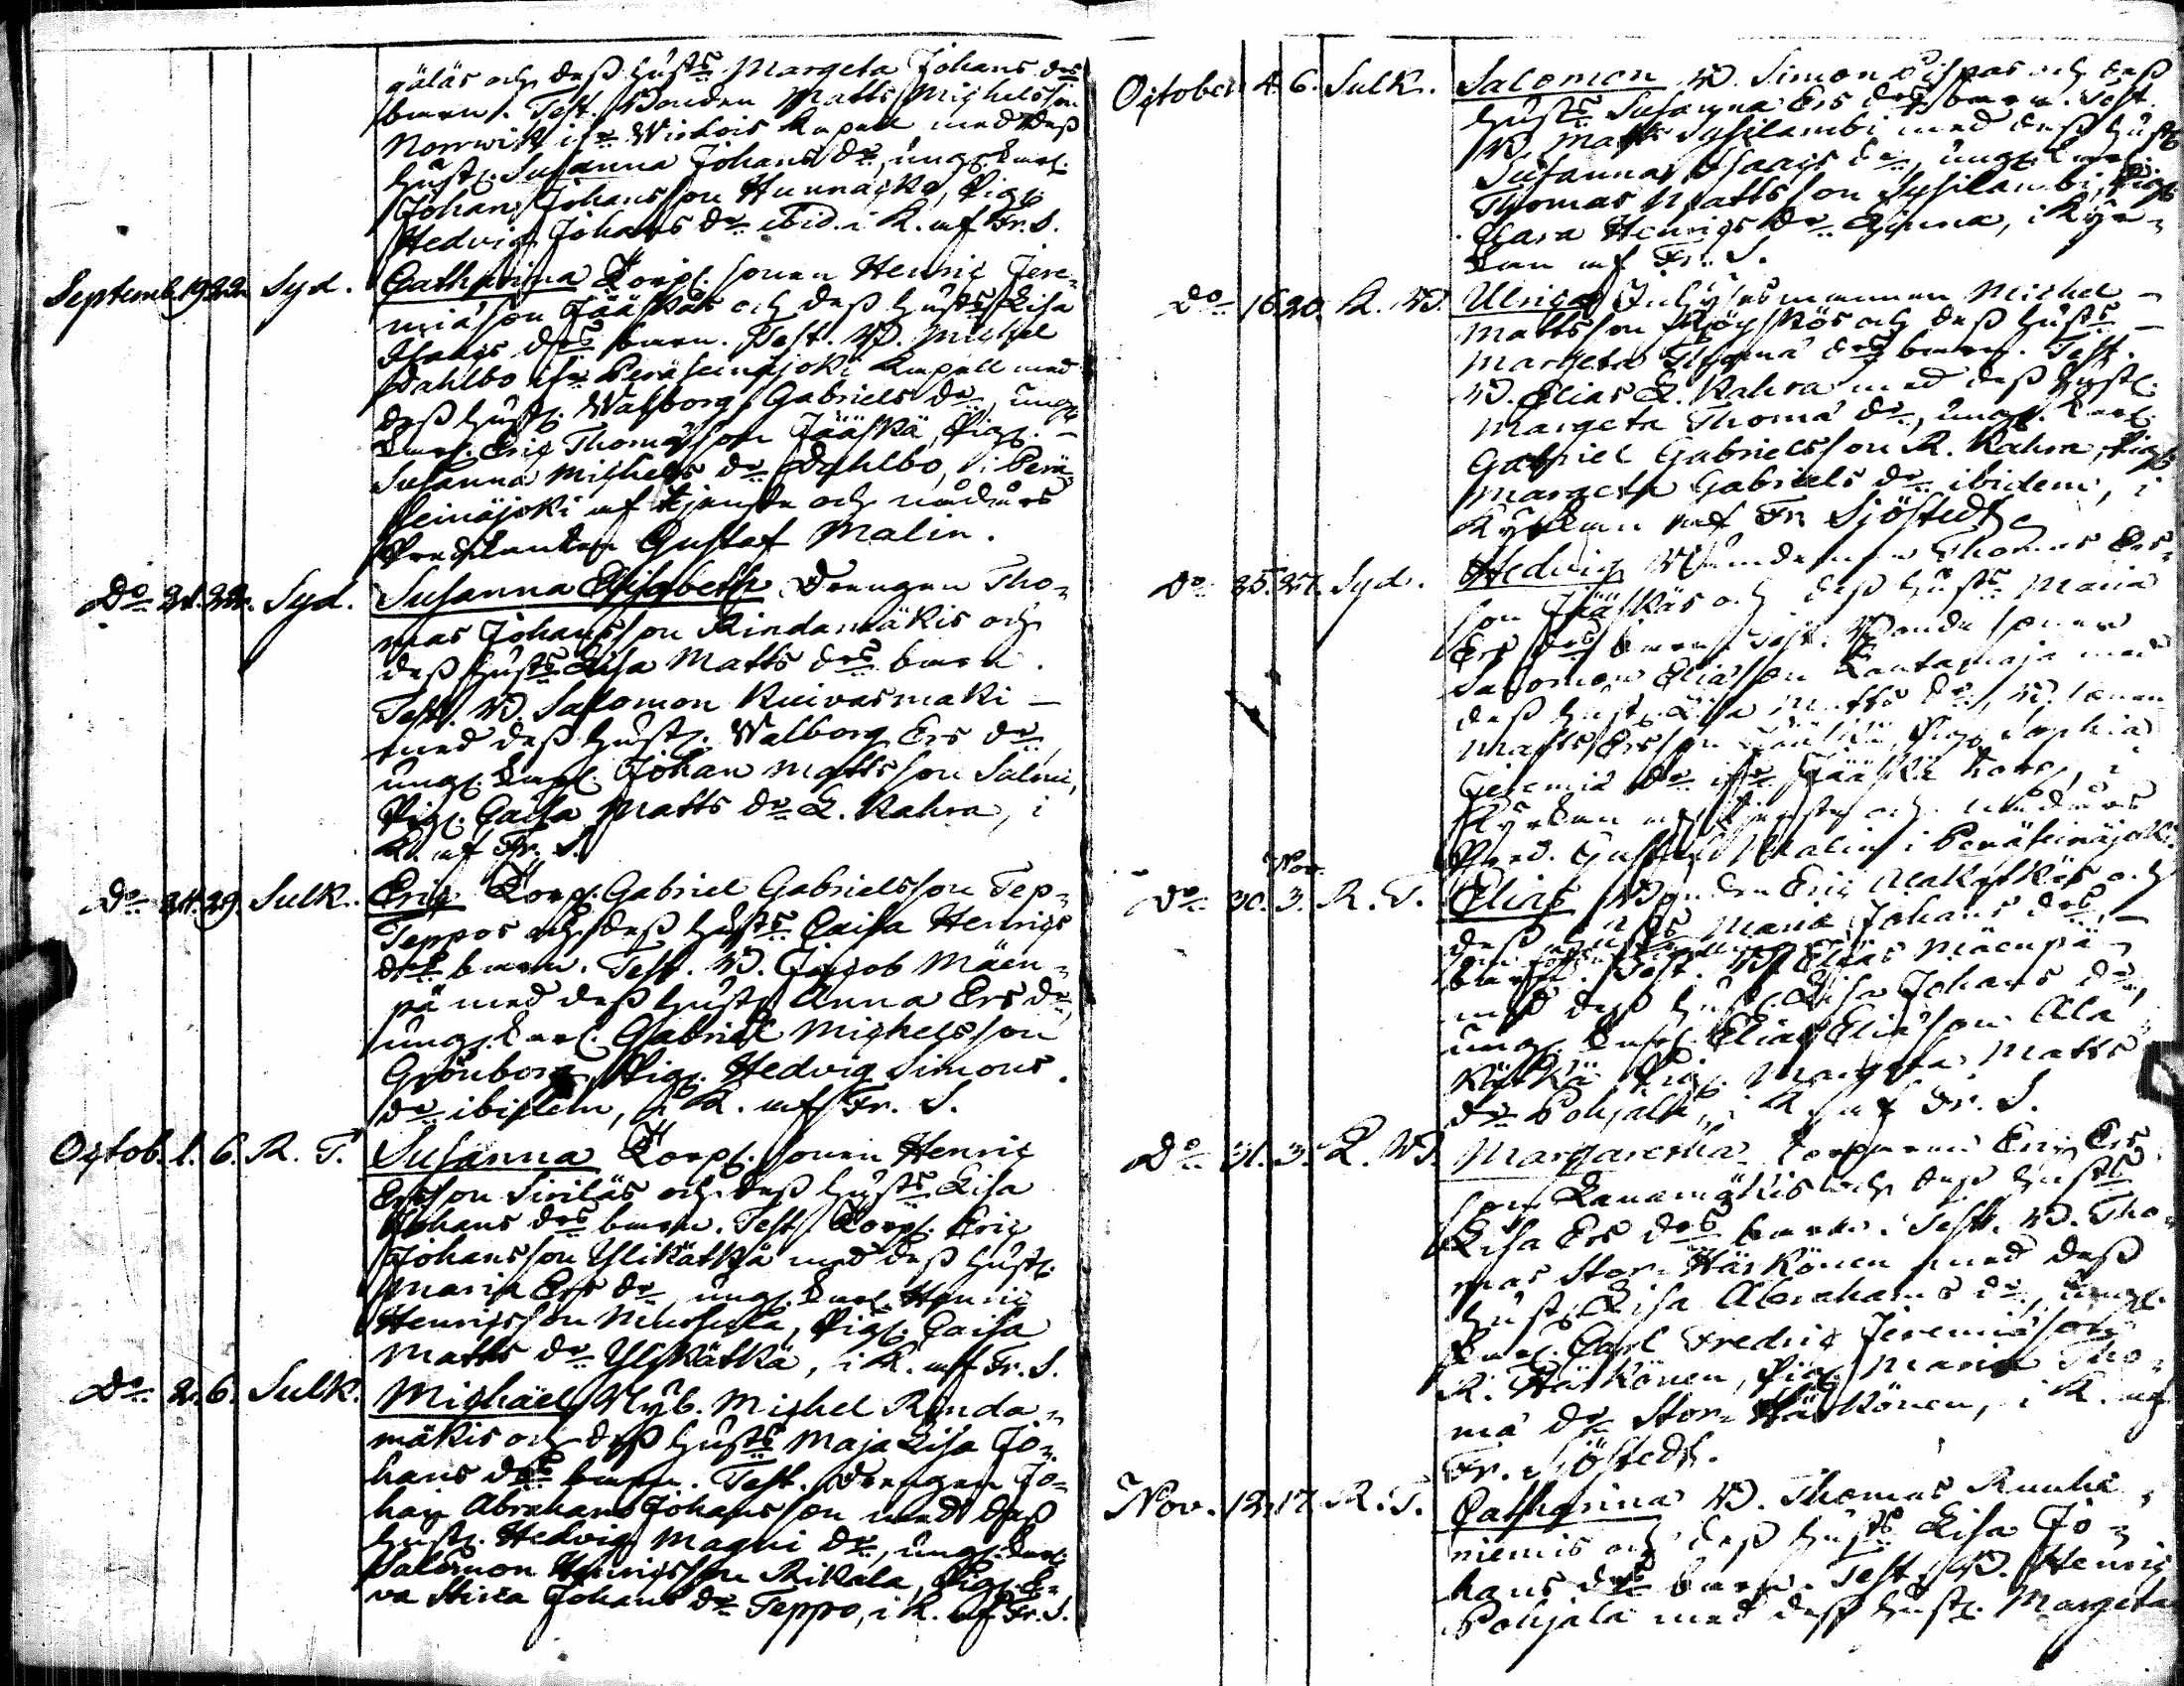 gäläs och deß hust:s Margeta Johans d:rs
barn. Test. Bonden Matts Michelsson
Norrwik ifr. Wirdois Kapell med deß
hust. Susanna Johans dr, ung. karl.
Johan Johansson Hunnacko, Pig.
Hedvig Johans dr ibid. i K. af Fr. S.
Septemb. 19. 22. Syd. Catharina Torp. sonen Henric Jere-
miäson Jääskäs och deß hust:s Lisa
Isaacs drs barn. Test. B. Michel
Dahlbo ifr. Peräseinäjoki Kapell med
deß hust. Walborg Gabriels dr, ung.
karl. Eric Thomasson Jääskä, Pig.
Susanna Michels dr Dahlbo, i Perä-
seinäjoki af tjenste och nådårs
Predikanten Gustaf Malin.
Do 21. 22. Syd. Susanna Elisabeth Drengen Tho-
mas Johansson Rindamäkis och
deß hust:s Lisa Matts drs barn.
Test. B. Salomon Kuivasmaki
med deß hust. Walborg Ers dr
ung. karl. Johan Mattsson Salmi,
Pig. Caisa Matts dr L. Rahra, i
K. af Fr. S.
Do 24. 29. Sulk. Eric Torp. Gabriel Gabrielsson Tep-
Teppos och deß hust:s Caisa Henrics
drs barn. Test. B. Jacob Mäen-
pä med deß hust. Anna Ers dr,
ung. karl. Gabriel Michelsson
Grönborg, Pig. Hedvig Simons
dr ibidem, i K. af Fr. S.
Octob. 1. 6. R. T. Susanna Torp. sonen Henric
Ersson Siriläs och deß hust:s Lisa
Johans drs barn. Test. Torp. Eric
Johansson Ylikätkä med deß hust.
Maria Ers dr, ung. karl Henric
Henricsson, Pig. Caisa
Matts dr Ylikätkä, i K. af Fr. S.
Do 2. 6. Sulk. Michäel Nyb. Michel Rinda-
mäkis och deß hust:s Maja Lisa Jo-
hans drs barn. Test. Drengen Jo-
han Abraham Johansson med deß
hust. Hedvig Magni dr, ung. karl.
Salomon Henricsson Rikala, Pig. E-
va Stina Johans dr Teppo, i K. af Fr. S.
October 4. 6. Sulk. Salomon B. Simon Pispas och deß
hust:s Susanna Ers drs barn. Test.
B. Matts Sysilambi med deß hust.
Susanna Isaacs dr, ung. karl.
Thomas Mattsson Sysilambi, Pig.
Clara Henrics dr, i Kyr-
kan af Fr. S.
Do 16. 20. K. B. Ulrica Inhysesmannen Michel
Mattsson och deß hust:s
Margeta Thomä drs barn. Test.
B. Elias L. Rahra med deß hust.
Margeta Thomä dr, ung. karl.
Gabriel Gabrielsson R. Rahra, Pig.
Margeta Gabriels dr ibidem, i
Kyrkan af Fr. Sjöstedt
Do 25. 27. Syd. Hedvig Thomas Ers-
son Jääskäs och deß hust:s Maria
Ers drs barn. Test. Bonde sonen
Salomon Eliäson Rantamaja med
deß hust. Lisa Matts dr, B. sonen
Matts Ersson, Pig. Sophia
Jeremiä dr ifr. Jääskä torp, i
Kyrkan af tjenste och nådårs
Pred. Gustaf Malin i Peräseinäjoki.
Do 30. Nov. 3. R. T. Elias Bonden Eric och
deß hust:s Maria Johans drs
barn. Test. B. Elias Mäenpä
med deß hust. Lisa Johans dr,
ung. karl. Elias Eliäson Ala
Kätkä, Pig. Margeta Matts
dr Pohjala, i K. af Fr. S.
Do 31. 3. L. B. Margaretha Torparen Eric Ers-
son Lanamäkis och deß hust:s
Lisa Ers drs barn. Test. B. Tho-
mas Stor-Härkönen med deß
hust. Lisa Abrahams dr, ung.
karl. Carl Fredric Jeremiäson
R. Härkönen, Pig. Maria Tho-
mä dr Stor-Härkönen, i K. af
Fr. Sjöstedt.
Nov. 12. 17. R. T. Catharina B. Thomas Ruuha-
niemis och deß hust:s Lisa Jo-
hans drs barn. Test. B. Henric
Pohjala med deß hust. Margeta